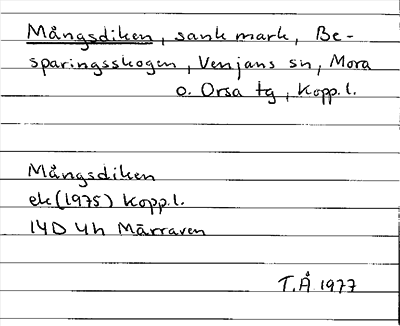 Mångsdiken, sank mark, Be-
sparingsskogen, Venjans sn, Mora
o. Orsa tg, Kopp.l.
Mångsdiken
ek (1975) Kopp.l.
14D 4h Märraven
T.Å 1977